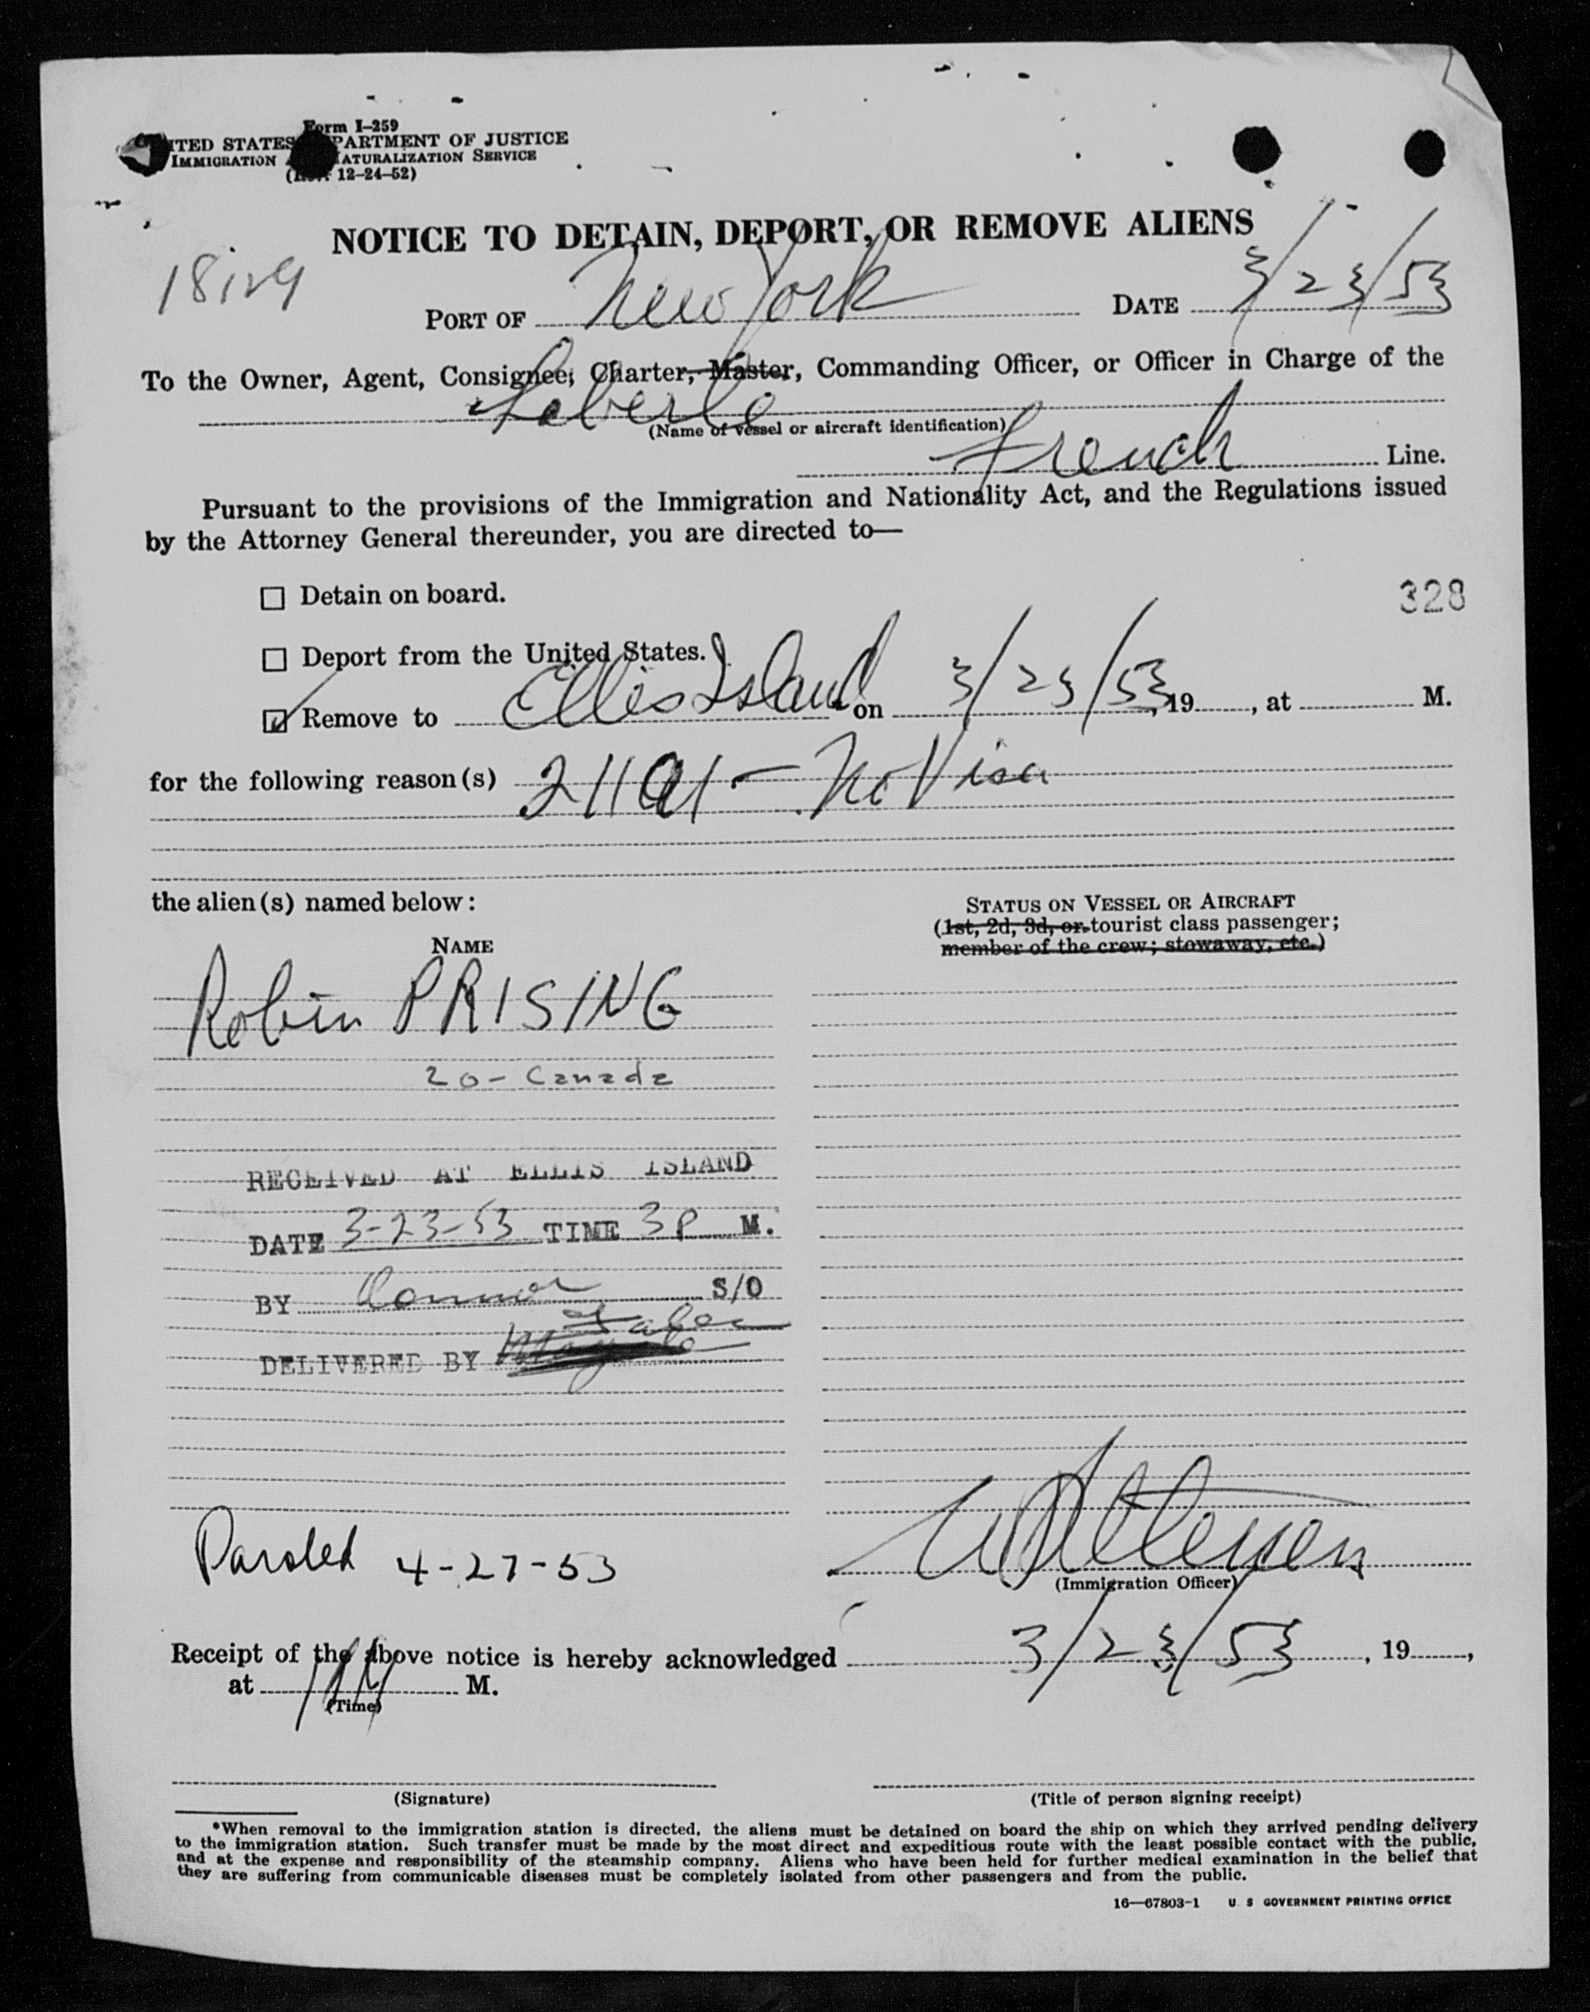 Form I–259
UNITED STATES DEPARTMENT OF JUSTICE
IMMIGRATION AND NATURALIZATION SERVICE
(Rev. 12–24–52)
NOTICE TO DETAIN, DEPORT, OR REMOVE ALIENS
PORT OF New York DATE 3/23/53
To the Owner, Agent, Consignee, Charter, Master, Commanding Officer, or Officer in Charge of the
Liberte
(Name of vessel or aircraft identification)
French Line.
Pursuant to the provisions of the Immigration and Nationality Act, and the Regulations issued
by the Attorney General thereunder, you are directed to—
Detain on board.
328
Deport from the United States.
Remove to Ellis Island on 3/23/53, 19, at M.
for the following reason(s) No Visa
the alien(s) named below:
STATUS ON VESSEL OR AIRCRAFT
(1st, 2d, 3d, or tourist class passenger;
member of the crew; stowaway, etc.)
NAME
Robin PRISING
20 - Canada
RECEIVED AT ELLIS ISLAND
DATE 3-23-53 TIME 3 P M.
BY Connor S/O
DELIVERED BY
Paroled 4-27-53
(Immigration Officer)
Receipt of the above notice is hereby acknowledged 3/23/53, 19,
at M.
(Time)
(Signature) (Title of person signing receipt)
*When removal to the immigration station is directed, the aliens must be detained on board the ship on which they arrived pending delivery
to the immigration station. Such transfer must be made by the most direct and expeditious route with the least possible contact with the public,
and at the expense and responsibility of the steamship company. Aliens who have been held for further medical examination in the belief that
they are suffering from communicable diseases must be completely isolated from other passengers and from the public.
16—67803-1 U S GOVERNMENT PRINTING OFFICE